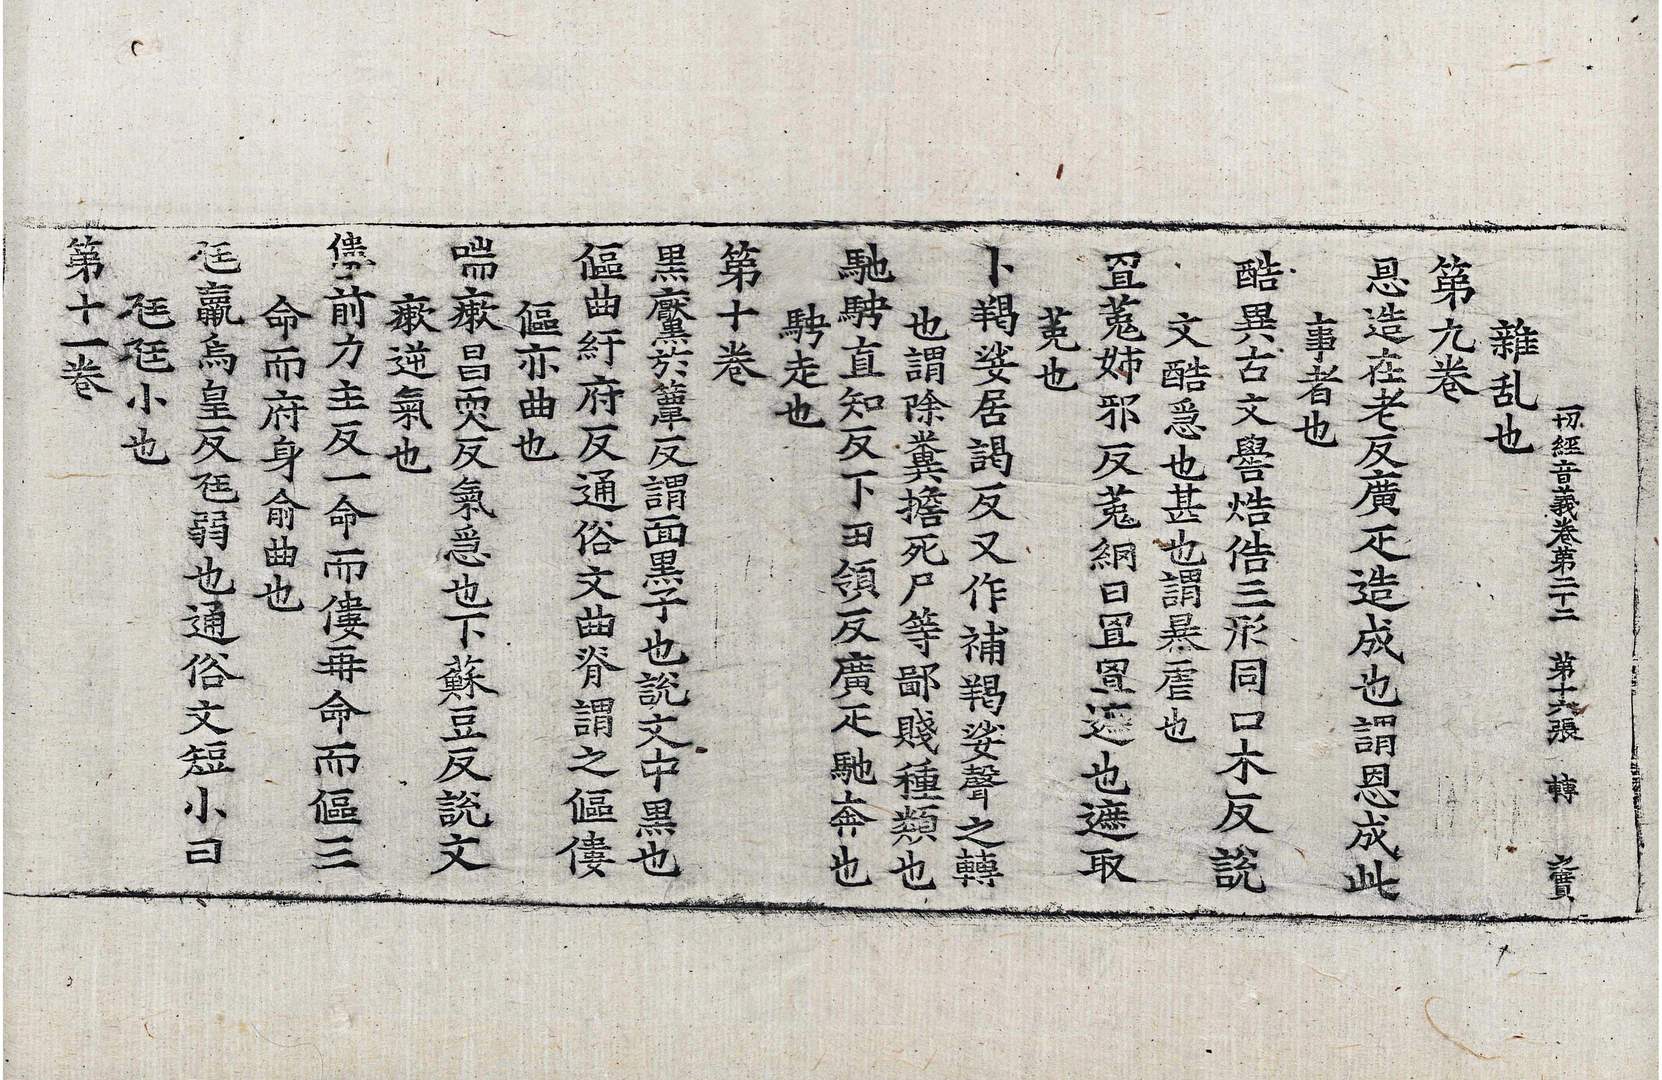 一切經音義卷第二十二 第十六張 轉 寶
雜乱也
第九卷
恩造在老反廣疋造成也謂恩成此
事者也
酷異古文嚳焅俈三形同口木反說
文酷急也甚也謂暴虐也
罝菟姊邪反菟網曰罝罝遮也遮取
菟也
卜羯娑居謁反又作補羯娑聲之轉
也謂除糞擔死尸等鄙賤種類也
馳騁直知反下丑領反廣疋馳奔也
騁走也
第十卷
黑黶於簟反謂面黑子也說文中黑也
傴曲紆府反通俗文曲脊謂之傴僂
傴亦曲也
喘瘶昌耎反氣急也下蘇豆反說文
瘶逆氣也
僂前力主反一命而僂再命而傴三
命而府身俞曲也
尪羸烏皇反尪弱也通俗文短小曰
尪尪小也
第十一卷